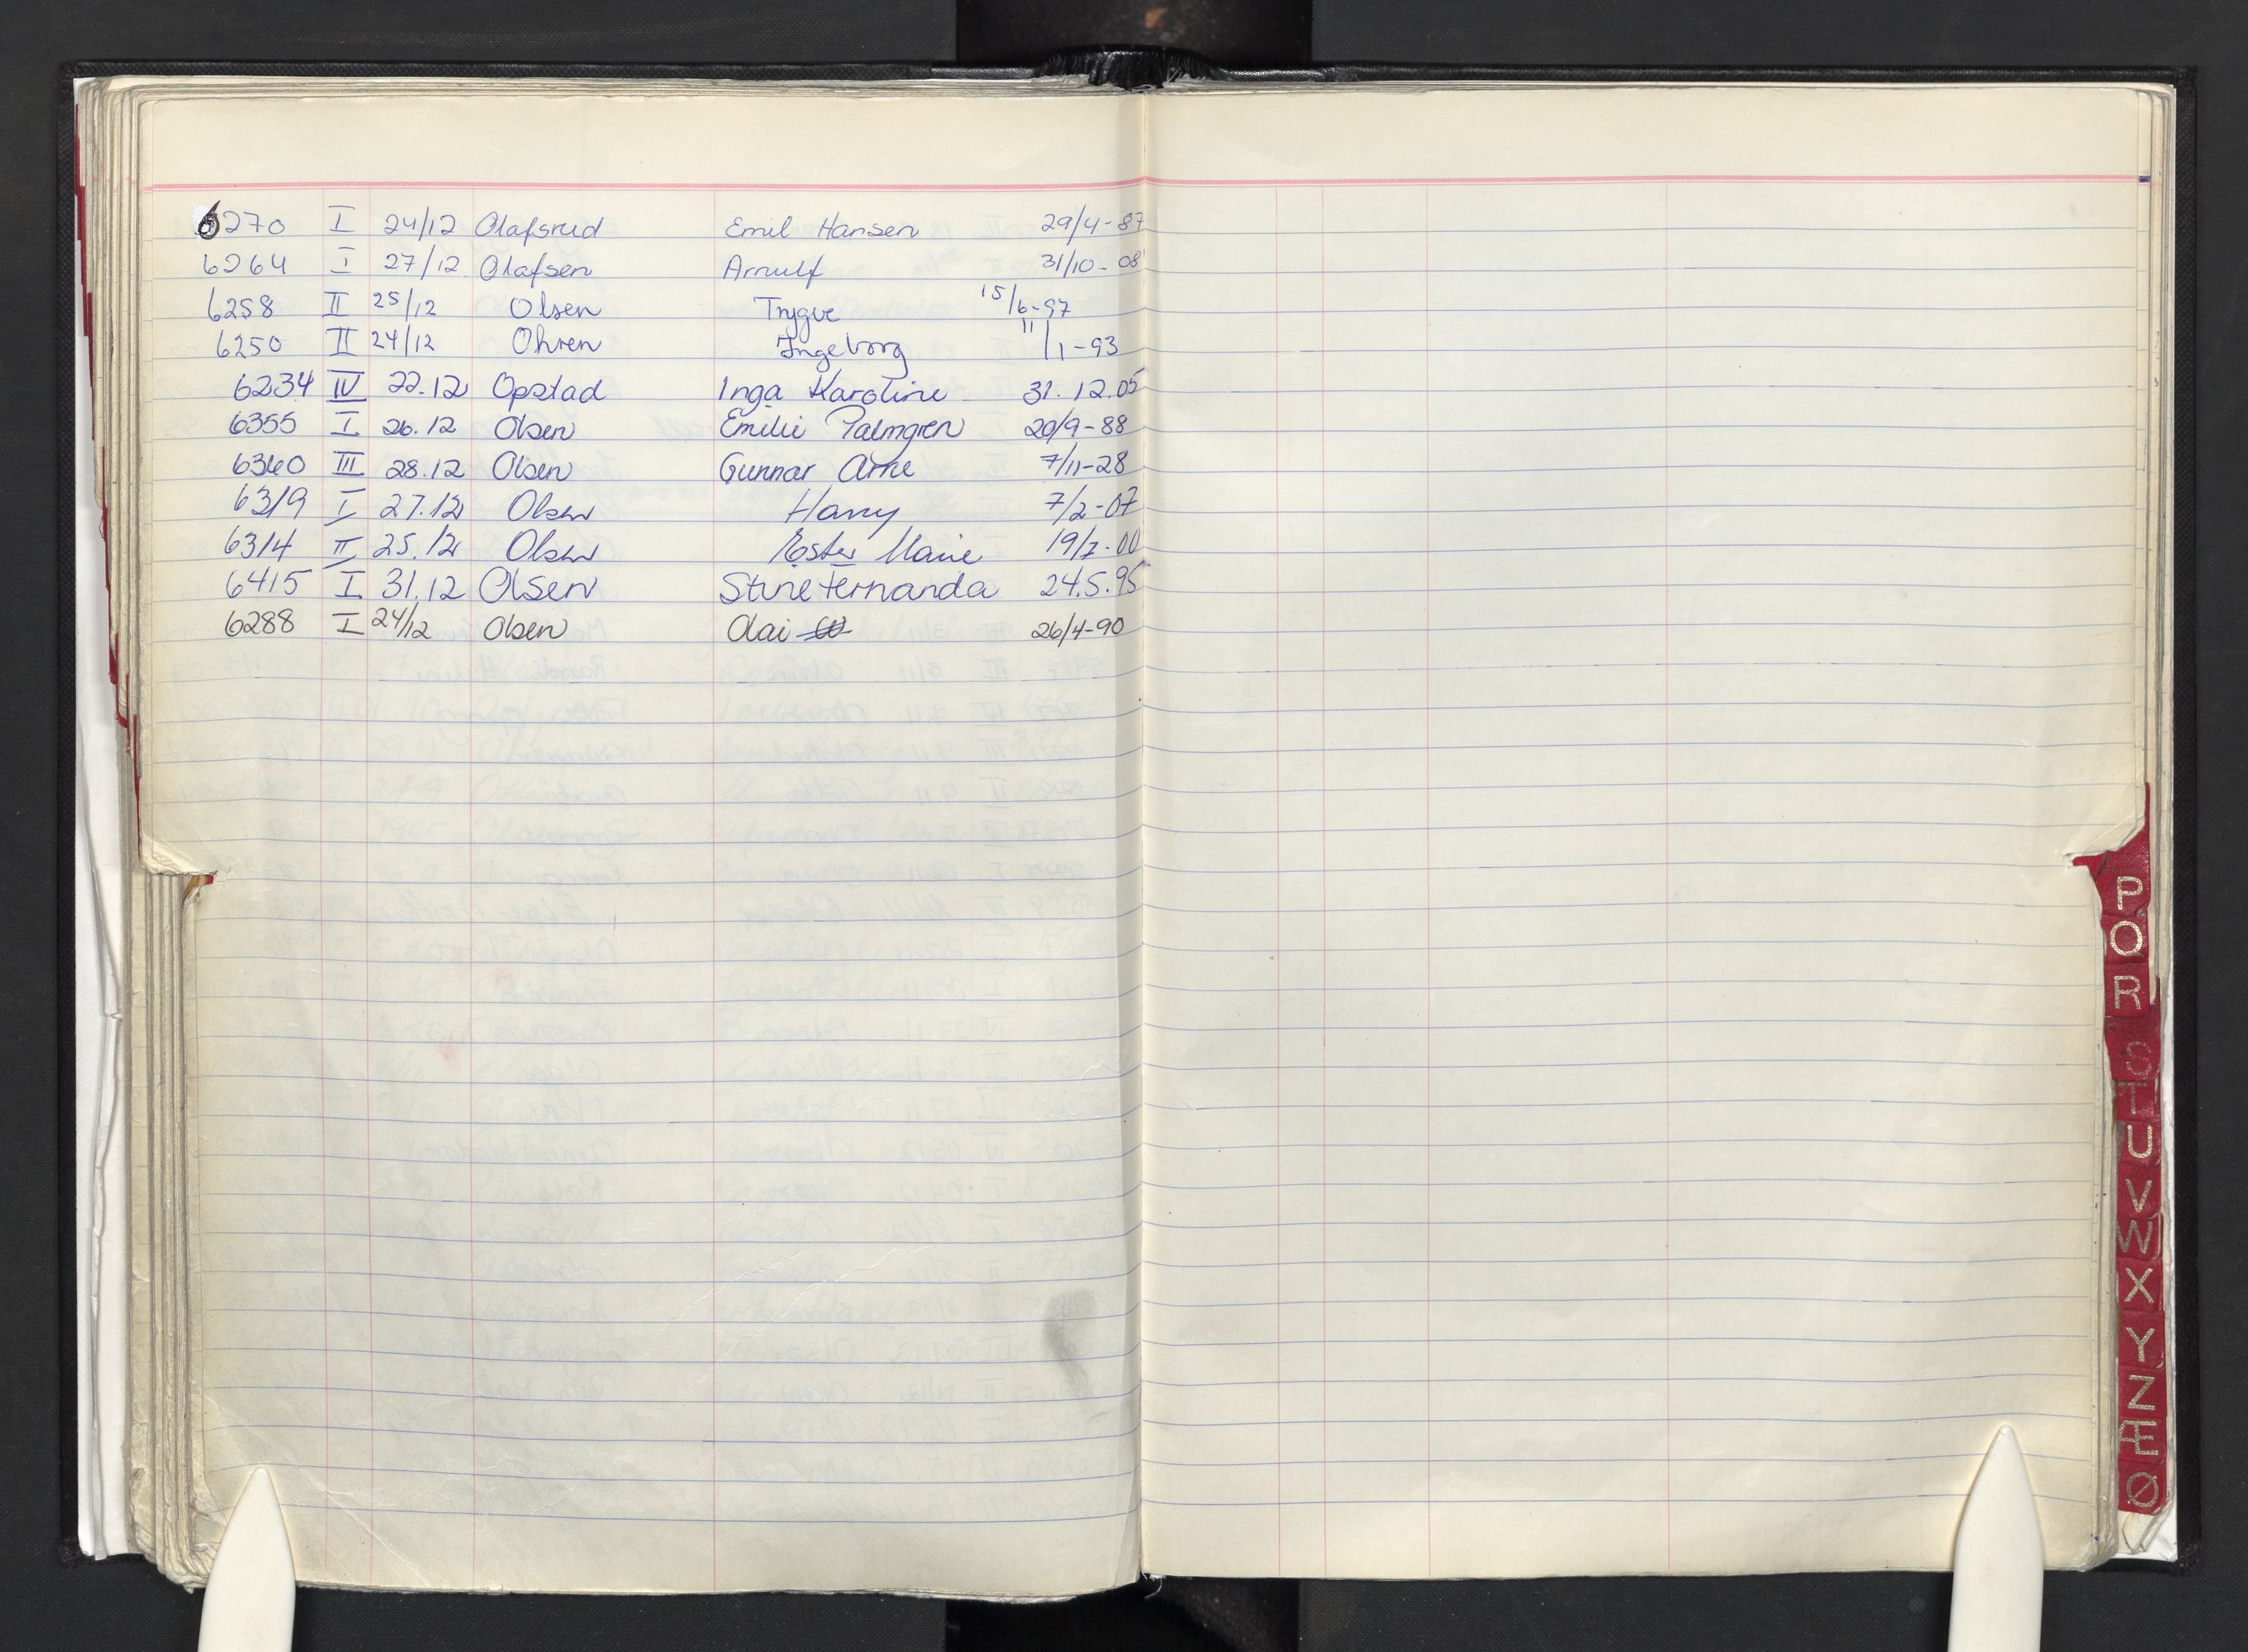 6270 I 24/12 Olafsrud Emil Hansen 29/4-87
6264 I 27/12 Olafsen Arnulf 31/10-08
6258 II 25/12 Olsen Trygve 15/6-97
6250 II 24/12 Ohren Ingeborg 11/1-93
6234 IV 22.12 Opstad Inga Karoline 31.12.05
6355 I 26.12 Olsen Emilie Palmgren 20/9-88
6340 III 28.12 Olsen Gunnar Arne 7/11-28
6319 I 27.12 Olsen Harry 7/2-07
6314 II 25.12 Olsen Ester Marie 19/7-00
6415 I 31.12 Olsen Stine Fernanda 24.5.95
6288 I 24/12 Olsen Olai 26/4-90
P
Q
R
S
T
U
V
W
X
Y
Z
Æ
Ø